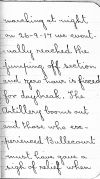 marching at night
on 26-9-17 we event-
ually reached the
jumping off section
and zero hour is fixed
for daybreak. The
Artillery booms out
and those who ex-
perienced Bullecourt
must have gave a
sigh of relief when